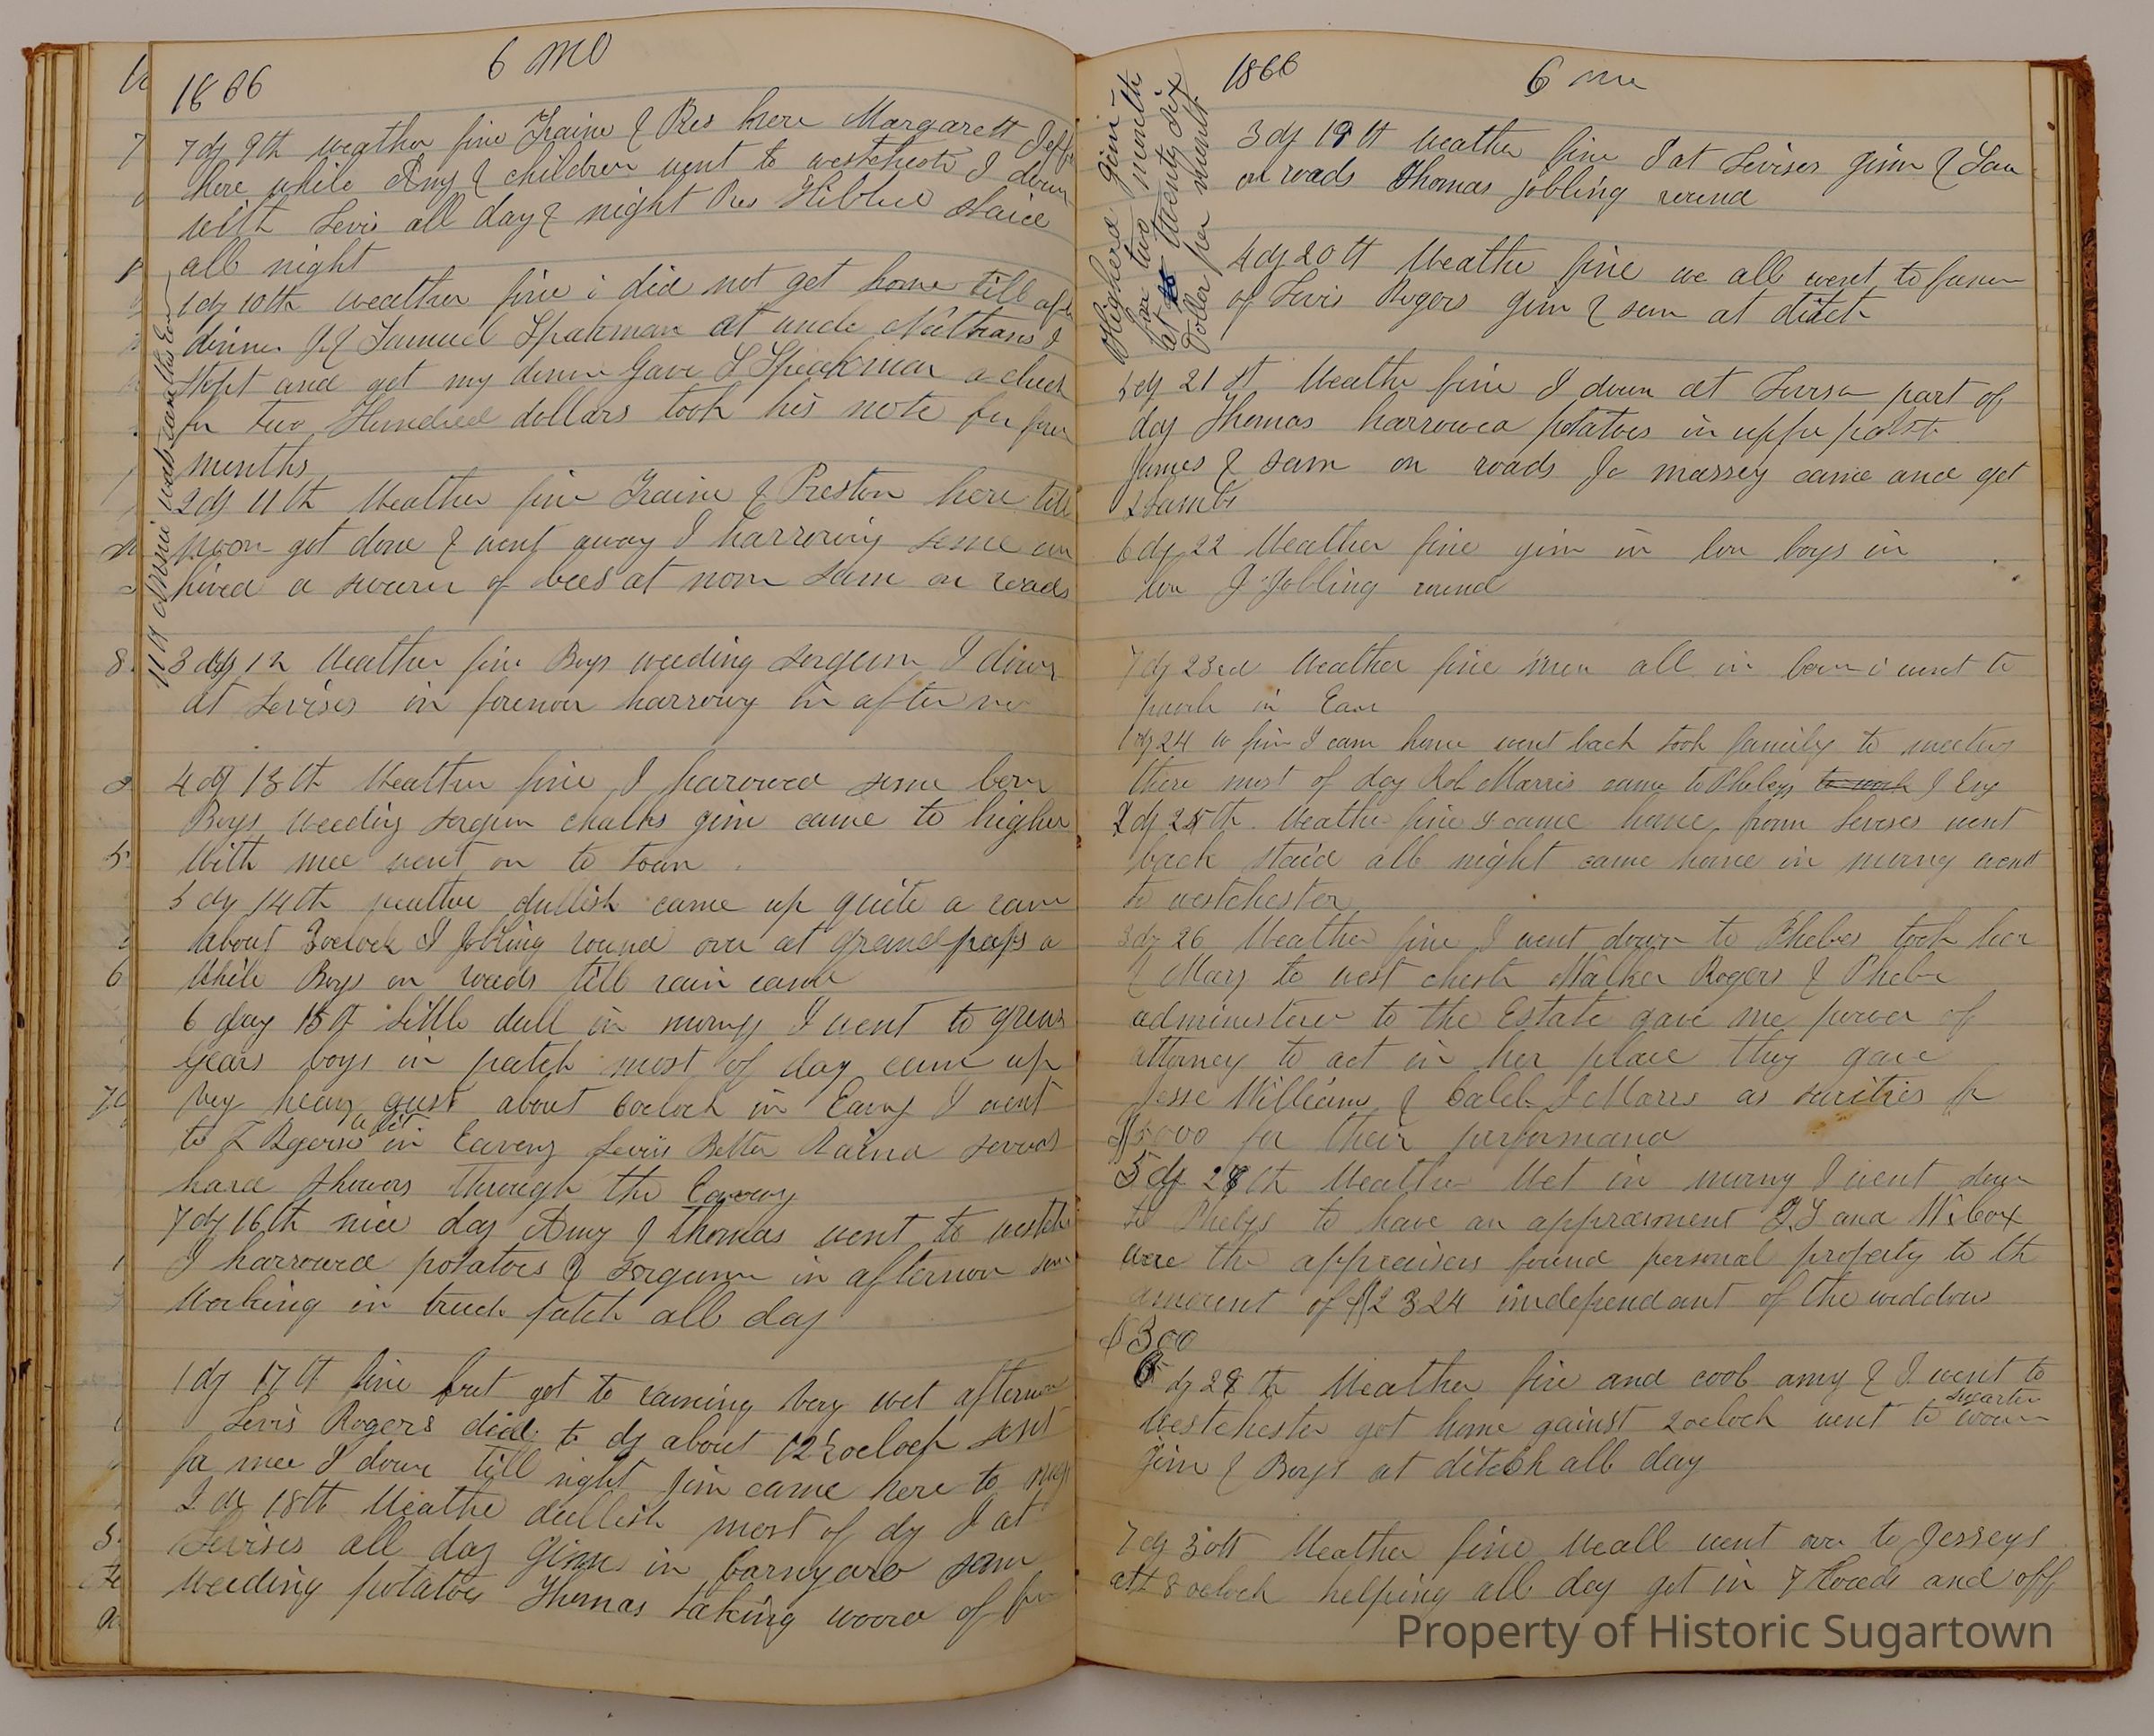 1866 6 mo
7 dy 9th weather fine Traine & Pres here Margarett Jeff
here while Amy & children went to westchest I down
with Levis all day & night Pres Hibberd staid
all night
1 dy 10th weather fine i did not get home till aft
dinner J & Samuel Speakman at uncle Nathans I
stopt and got my dinner Gave S Speakman a check
for two Hundred dollars took his note for four
months
2 dy 11th Weather fine Traine & Preston here till
noon got done & went away I harrowing some corn
hived a swarm of bees at noon Sam on roads
3 dy 12 Weather fine Boys weeding sorgum I down
at Levises in forenoon harrowing in after no
4 dy 13th Weather fine I harrowed some corn
Boys weeding sorgum chalks gim came to higher
With mee went on to town
5 dy 14th weather dullish came up quite a rain
about 3 oclock I Jobling round over at grandpaps a
While Boys on roads till rain came
6 day 15th little dull in morng I went to green
years boys in patch most of day came up
Very heavy gust about 6 oclock in Eavng I went
to L Rgerss in Eaveng Levis Better Raind several
hard showers through the Eaveng
7 dy 16th nice day Amy & thomas went to westch
I harrowed potatoes & Sorgum in afternoon Sam
Working in truck patch all day
1 dy 17th fine but got to raining Very wet afternoon
Levis Rogers died to dy about 12½ oclock sent
for mee I down till night Jim came here to
2 dy 18th Weathe dullish most of dy I at
Levises all day Gimm in barnyard Sam
weeding potatoes Thomas taking wood of
11th
1866 6 mo
Weighard gim
for two month
at twenty six
Doller per month
3 dy 19th Weather fine I at Levises Gimm & Sam
on roads Thomas jobling round
4 dy 20th Weathe fine we all went to funer
of Levis Rogers Gim & sam at ditch
5 dy 21st Weathe fine I down at part of
day Thomas harrowed potatoes in upper
James & Sam on roads Jo massey came and got
2 Lambs
6 dy 22 Weather fine gim in corn boys in
corn I Jobling round
7 dy 23rd Weather fine men all in corn i went to
in Eave
1 dy 24 w fine I came home went back took family to meeting
there most of day Rob Morris came to Phebeys to I
2 dy 25th Weathe fine I came home from Levises went
back staid all night came home in morng went
to westchester
3 dy 26 Weather fine I went down to Phebes took her
& Mary to west chester Walker Rogers & Phebe
administered to the Estate gave me power of
attorney to act in her place they gave
Jesse Williams & Caleb J Morris as surities for
$5000 for their performance
5 dy 28th Weather Wet in morng I went down
to Phebys to have an appraisment and
were the appraisers found personal property to th
amount of $2324 independant of the widdow
$300
6 dy 29 th Weather fine and cool amy & I went to
Westchester got home gainst 2 oclock went to sugartown
Jim & Boys at ditch all day
7 dy 30th Weather fine We all went over to Jesseys
att 8 oclock helping all day got in 7 Loads and off
Property of Historic Sugartown